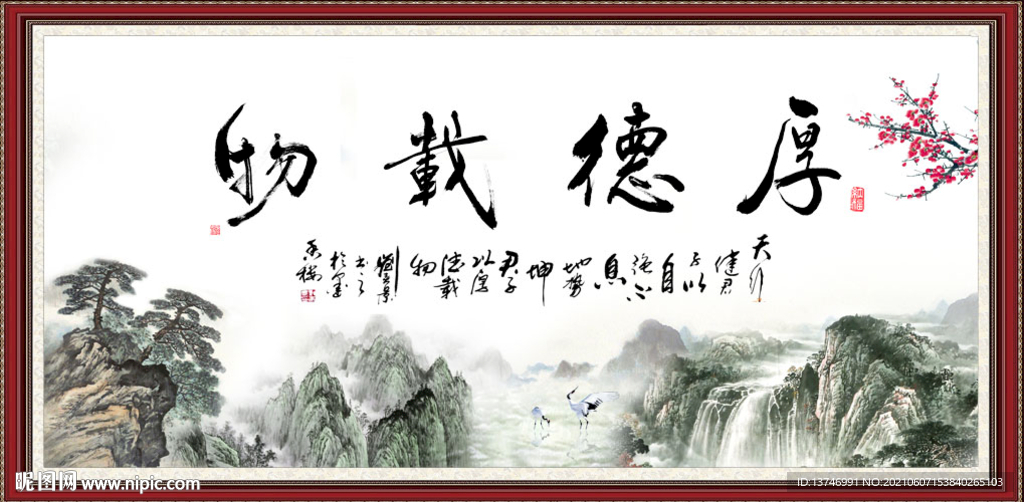 厚德載物
天行
健君
子以
自
强不
息
地勢
坤
君子
以厚
德載
物
昵图网 www.nipic.com
ID:13746991 NO:20210607153840265103